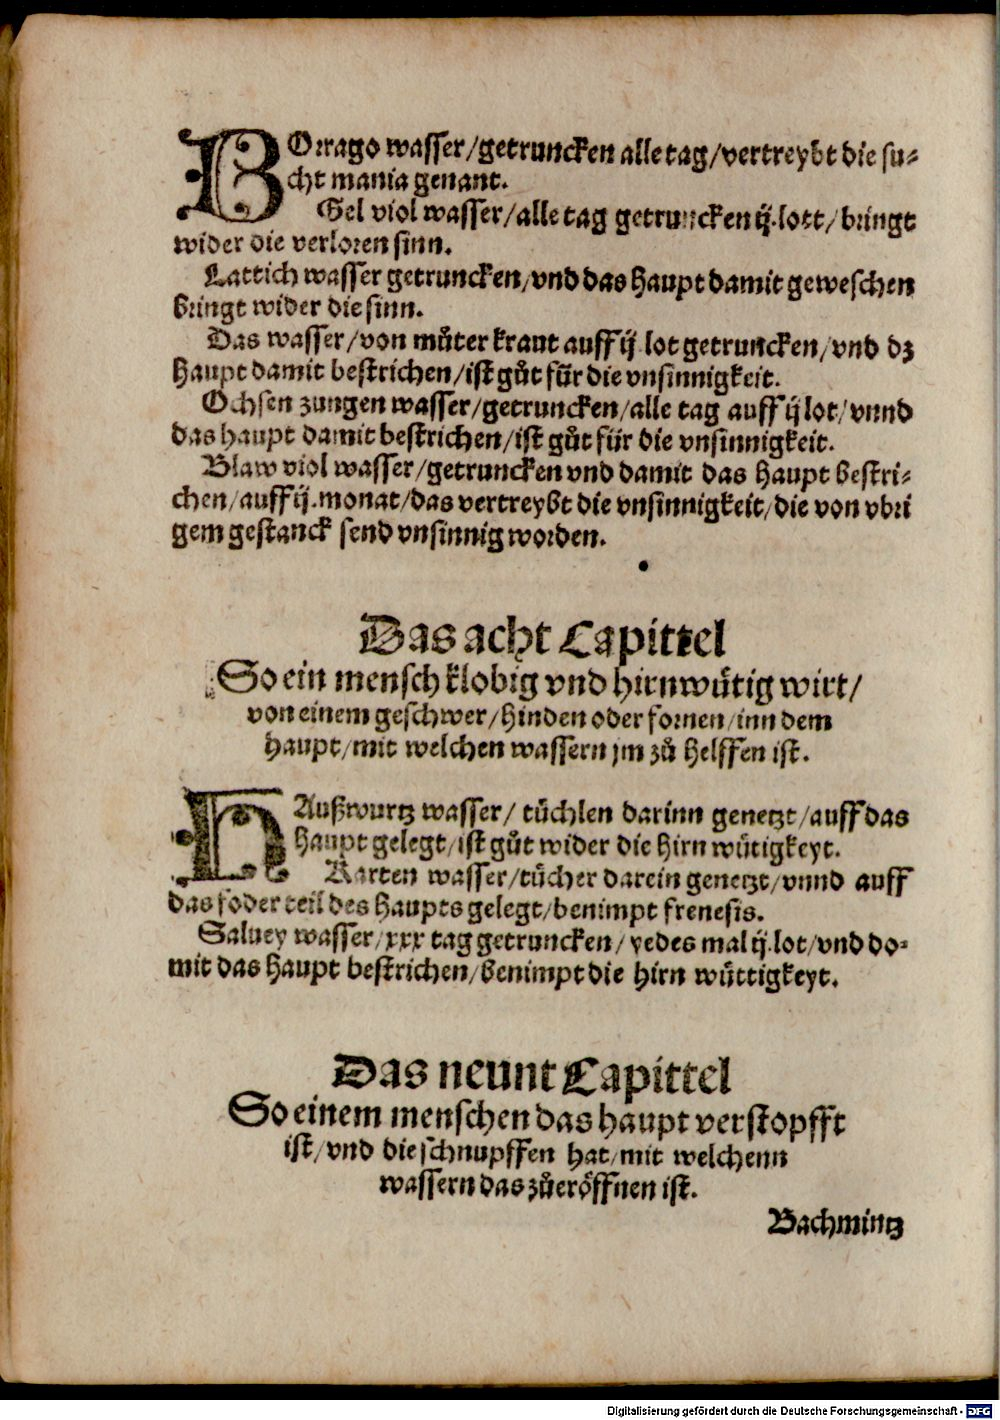 BOrrago wasser/getruncken alle tag/vertreybt die su⸗
cht mania genant.
Gel viol wasser/alle tag getruncken ij.lott/bringt
wider die verloren sinn.
Lattich wasser getruncken/vnd das haupt damit geweschen
bringt wider die sinn.
Das wasser/von můter kraut auff ij lot getruncken/vnd dz
haupt damit bestrichen/ist gůt für die vnsinnigkeit.
Ochsen zungen wasser/getruncken/alle tag auff ij lot/vnnd
das haupt damit bestrichen/ist gůt für die vnsinnigkeit.
Blaw viol wasser/getruncken vnd damit das haupt bestri⸗
chen/auff ij.monat/das vertreybt die vnsinnigkeit/die von vbri
gem gestanck send vnsinnig worden.
Das acht Capittel
So ein mensch klobig vnd hirnwütig wirt/
von einem geschwer/hinden oder fornen/inn dem
haupt/mit welchen wassern jm zů helffen ist.
HAußwurtz wasser/ tüchlen darinn genetzt/auff das
haupt gelegt/ist gůt wider die hirn wütigkeyt.
Karten wasser/tücher darein genetzt/vnnd auff
das foder teil des haupts gelegt/benimpt frenesis.
Saluey wasser/xxx tag getruncken/ yedes mal ij.lot/vnd do⸗
mit das haupt bestrichen/benimpt die hirn wüttigkeyt.
Das neunt Capittel
So einem menschen das haupt verstopfft
ist/vnd die schnupffen hat/mit welchenn
wassern das zůeröffnen ist.
Bachmintz
Digitalisierung gefördert durch die Deutsche Forschungsgemeinschaft - DFG